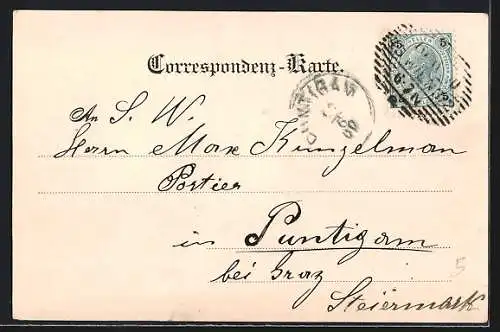 Correspondenz-Karte.
5
PUNTIGAM
An S. W.
Herrn Max Kunzelman
Portier
in Puntigam
bei Graz
5
Steiermark